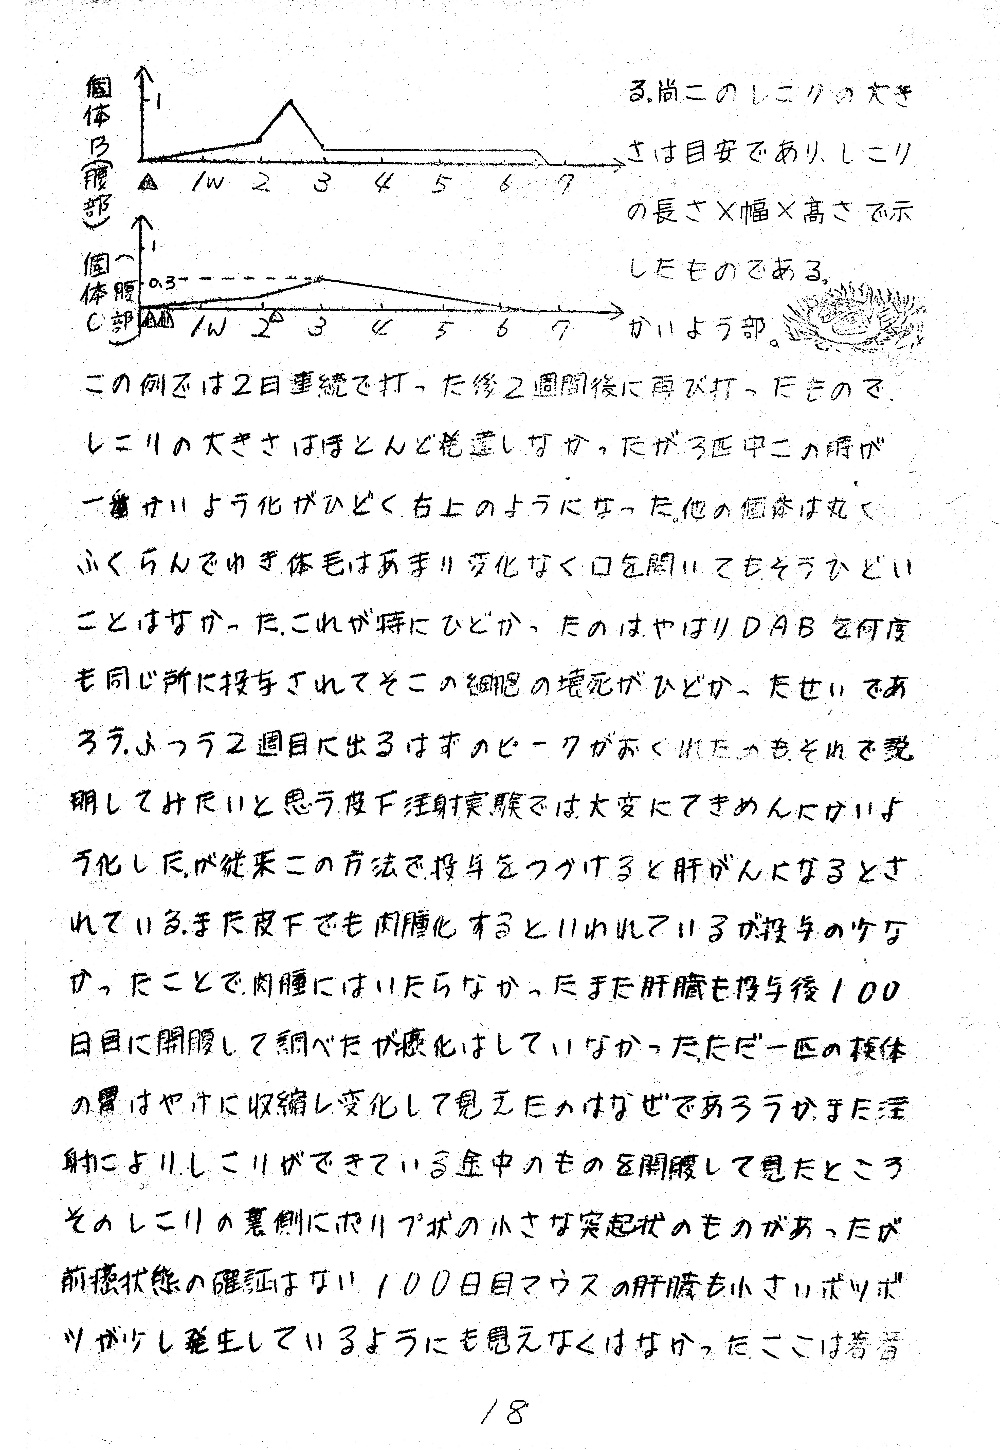 個体B(腹部)
1
1W 2 3 4 5 6 7
個体C(腹部)
1
0.3
1W 2 3 4 5 6 7
る.尚このしこりの大き
さは目安であり、しこり
の長さ×幅×高さで示
したものである。
かいよう部。
この例では2日連続で打った後2週間後に再び打ったもので、
しこりの大きさはほとんど発達しなかったが3匹中この時が
一番かいよう化がひどく右上のようになった。他の個体は丸く
ふくらんでゆき体毛はあまり変化なく口を開いてもそうひどい
ことはなかった.これが特にひどかったのはやはりDABを何度
も同じ所に投与されてそこの細胞の壊死がひどかったせいであ
ろう.ふつう2週目に出るはずのピークがおくれたのもそれで説
明してみたいと思う皮下注射実験では大変にてきめんにかいよ
う化した.が従来この方法で投与をつづけると肝がんになるとさ
れている.また皮下でも肉腫化するといわれているが投与の少な
かったことで.肉腫にはいたらなかったまた肝臓も投与後100
日目に開腹して調べたが癌化はしていなかった.ただ一匹の検体
の胃はやけに収縮し変化して見えたのはなぜであろうか.また注
射によりしこりができている途中のものを開腹して見たところ
そのしこりの裏側にポリプ状の小さな突起状のものがあったが
前癌状態の確証はない100日目マウスの肝臓も小さいポツポ
ツが少し発生しているようにも思えなくはなかった.ここは若者
18